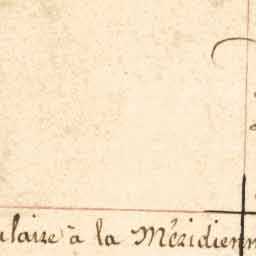 ulaire à la Méridienn